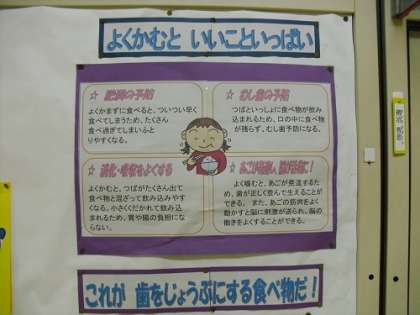 よくかむと いいこといっぱい
☆ 肥満の予防
よくかまずに食べると、ついつい早く
食べてしまうため、たくさん
食べ過ぎてしまいふと
りやすくなる。
☆ むし歯の予防
つばといっしょに食べ物が飲み
込まれるため、口の中に食べ物
が残らず、むし歯予防になる。
☆ 消化・吸収をよくする
よくかむと、つばがたくさん出て
食べ物と混ざって飲み込みやす
くなる。小さくくだかれて飲み込
まれるため、胃や腸の負担になら
ない。
よく噛むと、あごが発達するた
め、歯が正しく並んで生えることが
できる。また、あごの筋肉をよく
動かすと脳に刺激が送られ、脳の
働きをよくすることができる。
これが 歯をじょうぶにする食べ物だ！